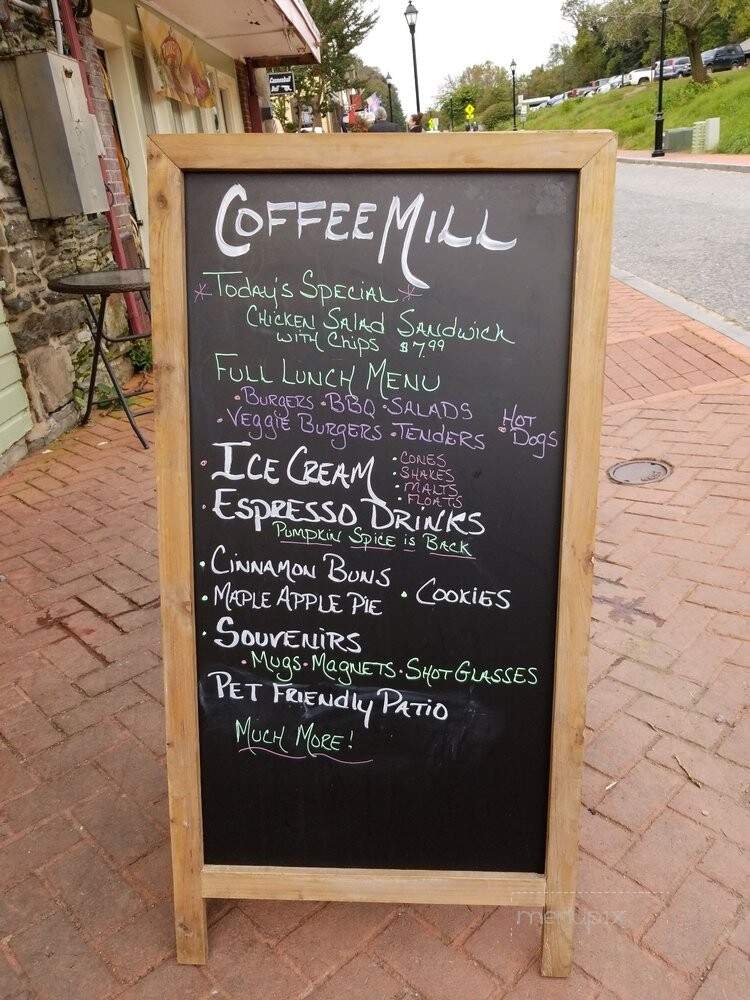 Cannonball Deli
COFFEE MILL
* TODAY'S SPECIAL *
CHICKEN SALAD SANDWICH
WITH CHIPS $7.99
FULL LUNCH MENU
• BURGERS • BBQ • SALADS
• VEGGIE BURGERS • TENDERS
• HOT DOGS
• ICE CREAM
• CONES
• SHAKES
• MALTS
• FLOATS
• ESPRESSO DRINKS
PUMPKIN SPICE IS BACK
• CINNAMON BUNS
• MAPLE APPLE PIE
• COOKIES
• SOUVENIRS
• MUGS • MAGNETS • SHOT GLASSES
PET FRIENDLY PATIO
MUCH MORE!
menupix